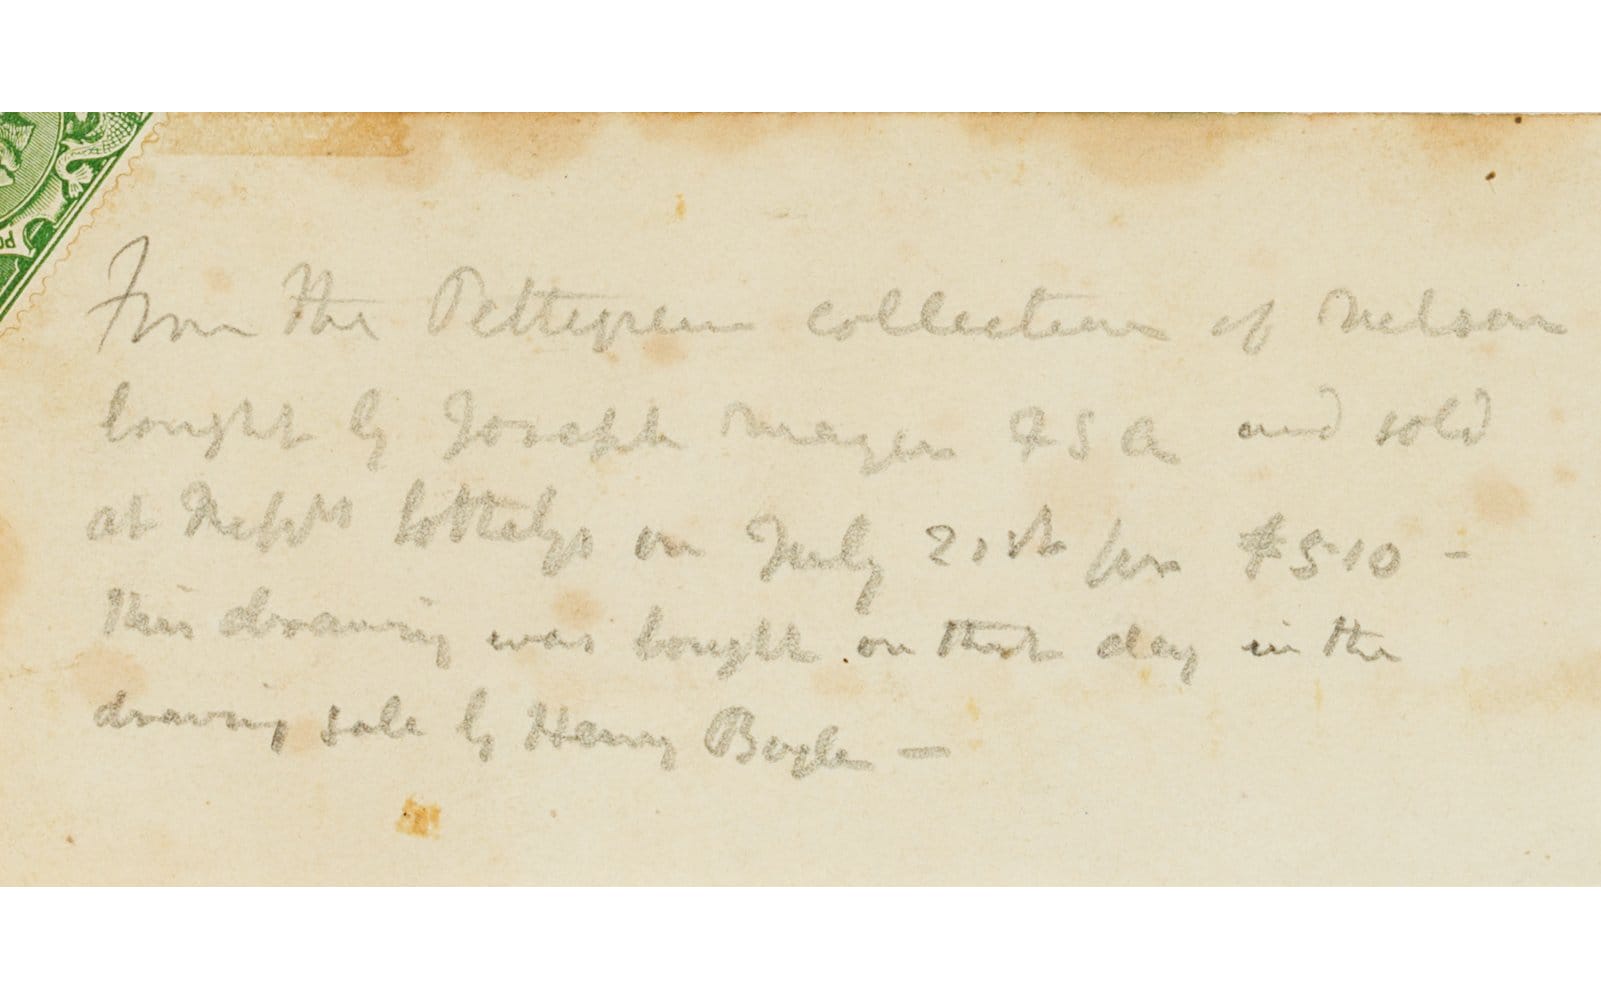 PO
From the Pettigrew collection of Nelson
bought by Joseph Mayer FSA and sold
at Messrs Sothebys on July 21st for £510 –
This drawing was bought on that day in the
drawing sale by Henry Bogle —